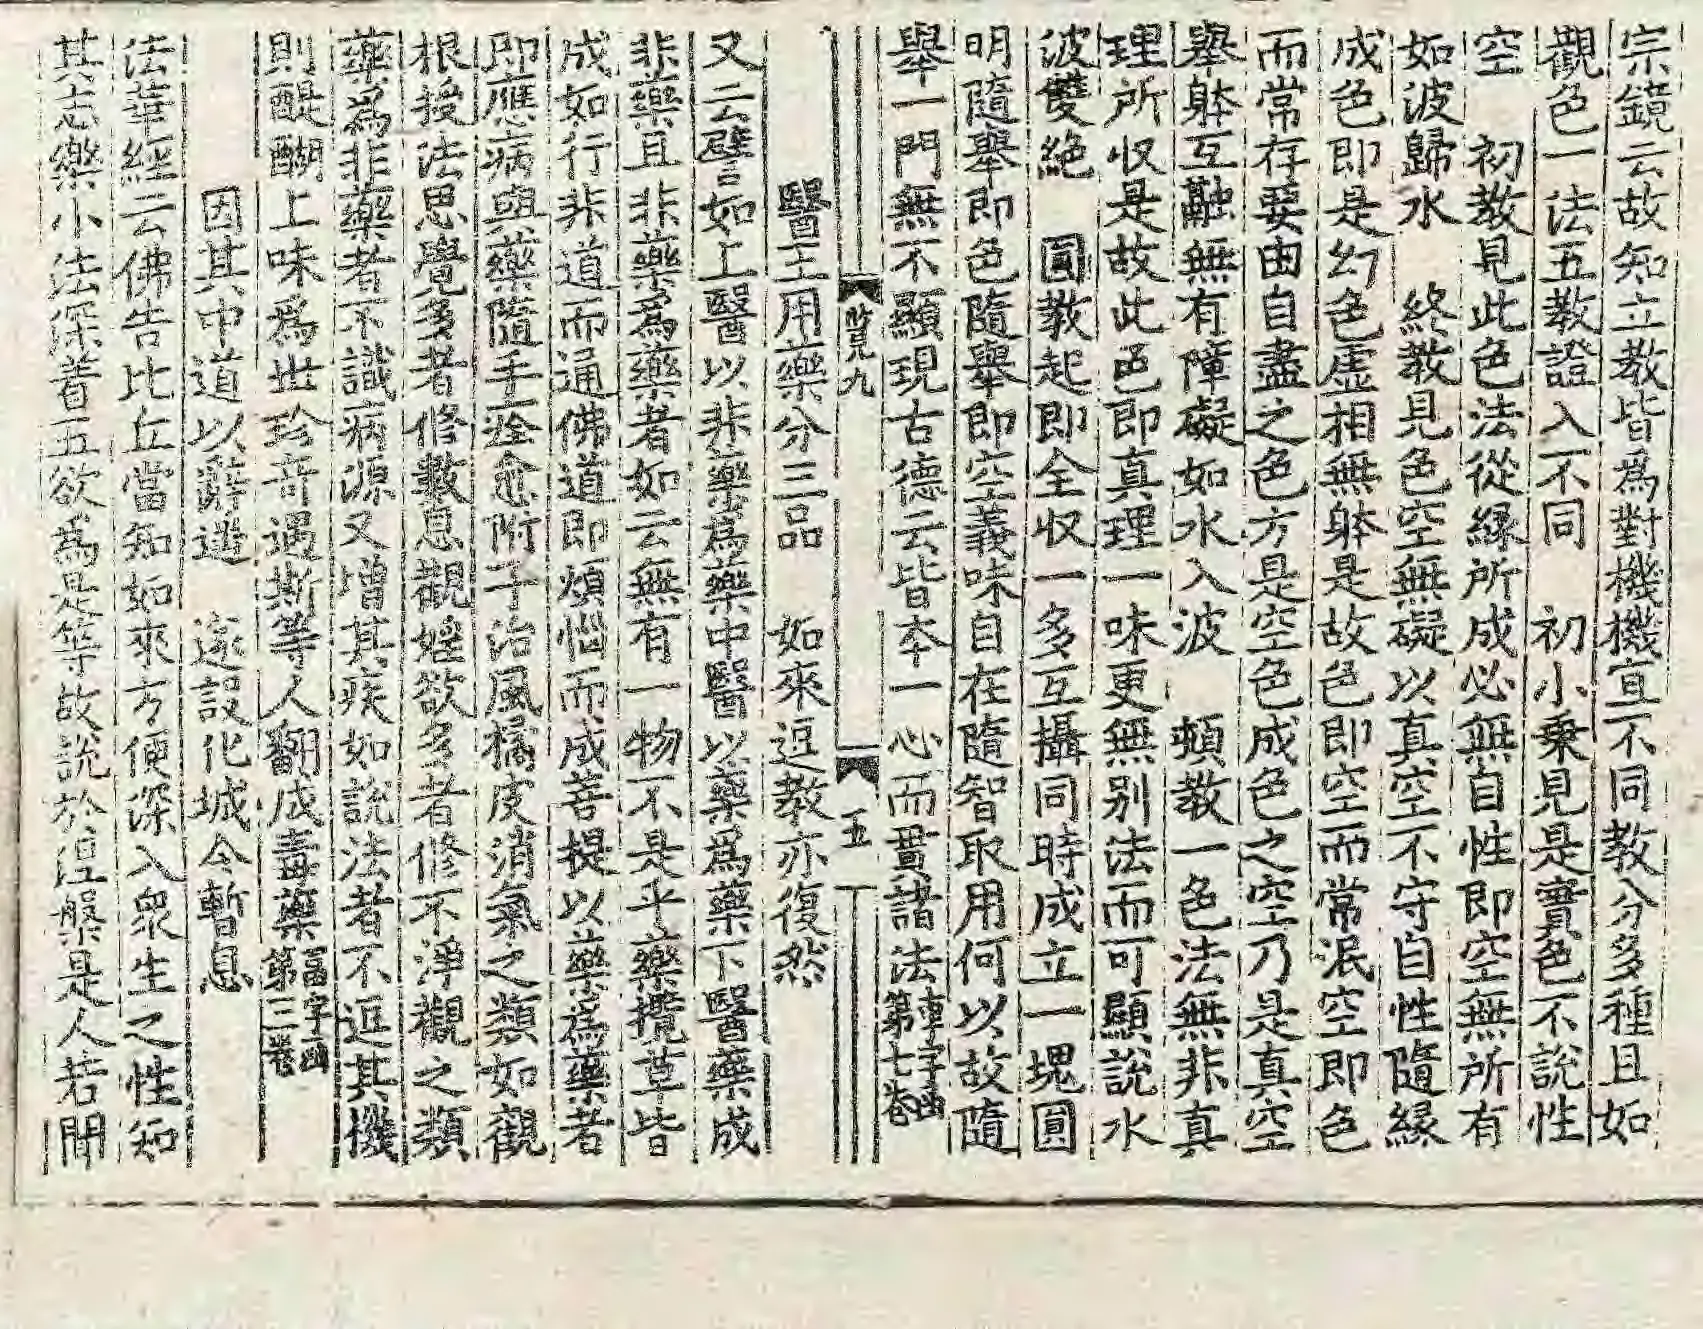 宗鏡云故知立教皆爲對機機宜不同教分多種且如
觀色一法五教證入不同　初小乗見是實色不說性
空　初教見此色法從緣所成必無自性即空無所有
如波歸水　終教見色空無礙以真空不守自性隨緣
成色即是幻色虛相無躰是故色即空而常泯空即色
而常存要由自盡之色方是空色成色之空乃是真空
舉躰互融無有障礙如水入波　頓教一色法無非真
理所収是故此色即真理一味更無别法而可顯說水
波雙絶　圓教起即全収一多互攝同時成立一塊圓
明隨舉即色隨舉即空義味自在隨智取用何以故隨
舉一門無不顯現古德云皆本一心而貫諸法
第七卷
九
五
醫王用藥分三品　如來逗教亦復然
又云譬如上醫以非藥爲藥中醫以藥爲藥下醫藥成
非藥且非藥爲藥者如云無有一物不是乎藥攬草皆
成如行非道而通佛道即煩惱而成菩提以藥爲藥者
即應病與藥隨手痊愈附子治風橘皮消氣之類如觀
根授法思覺多者修數息觀婬欲多者修不淨觀之類
藥爲非藥者不識病源又增其疾如說法者不逗其機
則醍醐上味爲世珍奇遇斯等人翻成毒藥富字凾
第三卷
因其中道以辭遣　遂設化城令暫息
法華經云佛告比丘當知如來方便深入衆生之性知
其志樂小法深着五欲爲是等故說於涅槃是人若聞